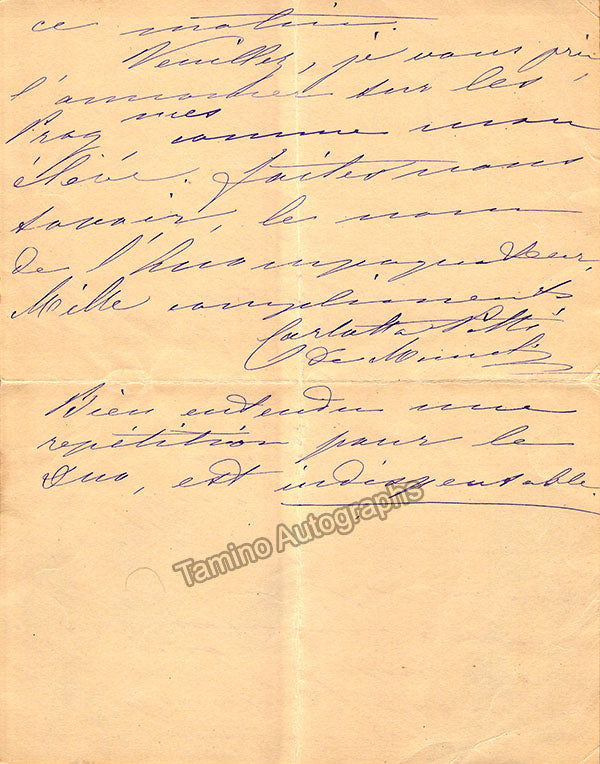 ce matin.
Veuillez, je vous prie
l'annoncer sur les
Prog mes comme mon
élève. faites nous
savoir, le nom
de l'Accompagnateur,
Mille compliments
Carlotta Patti
de Munck
Bien entendu une
repétition pour le
Duo, est indispensable.
Tamino Autographs